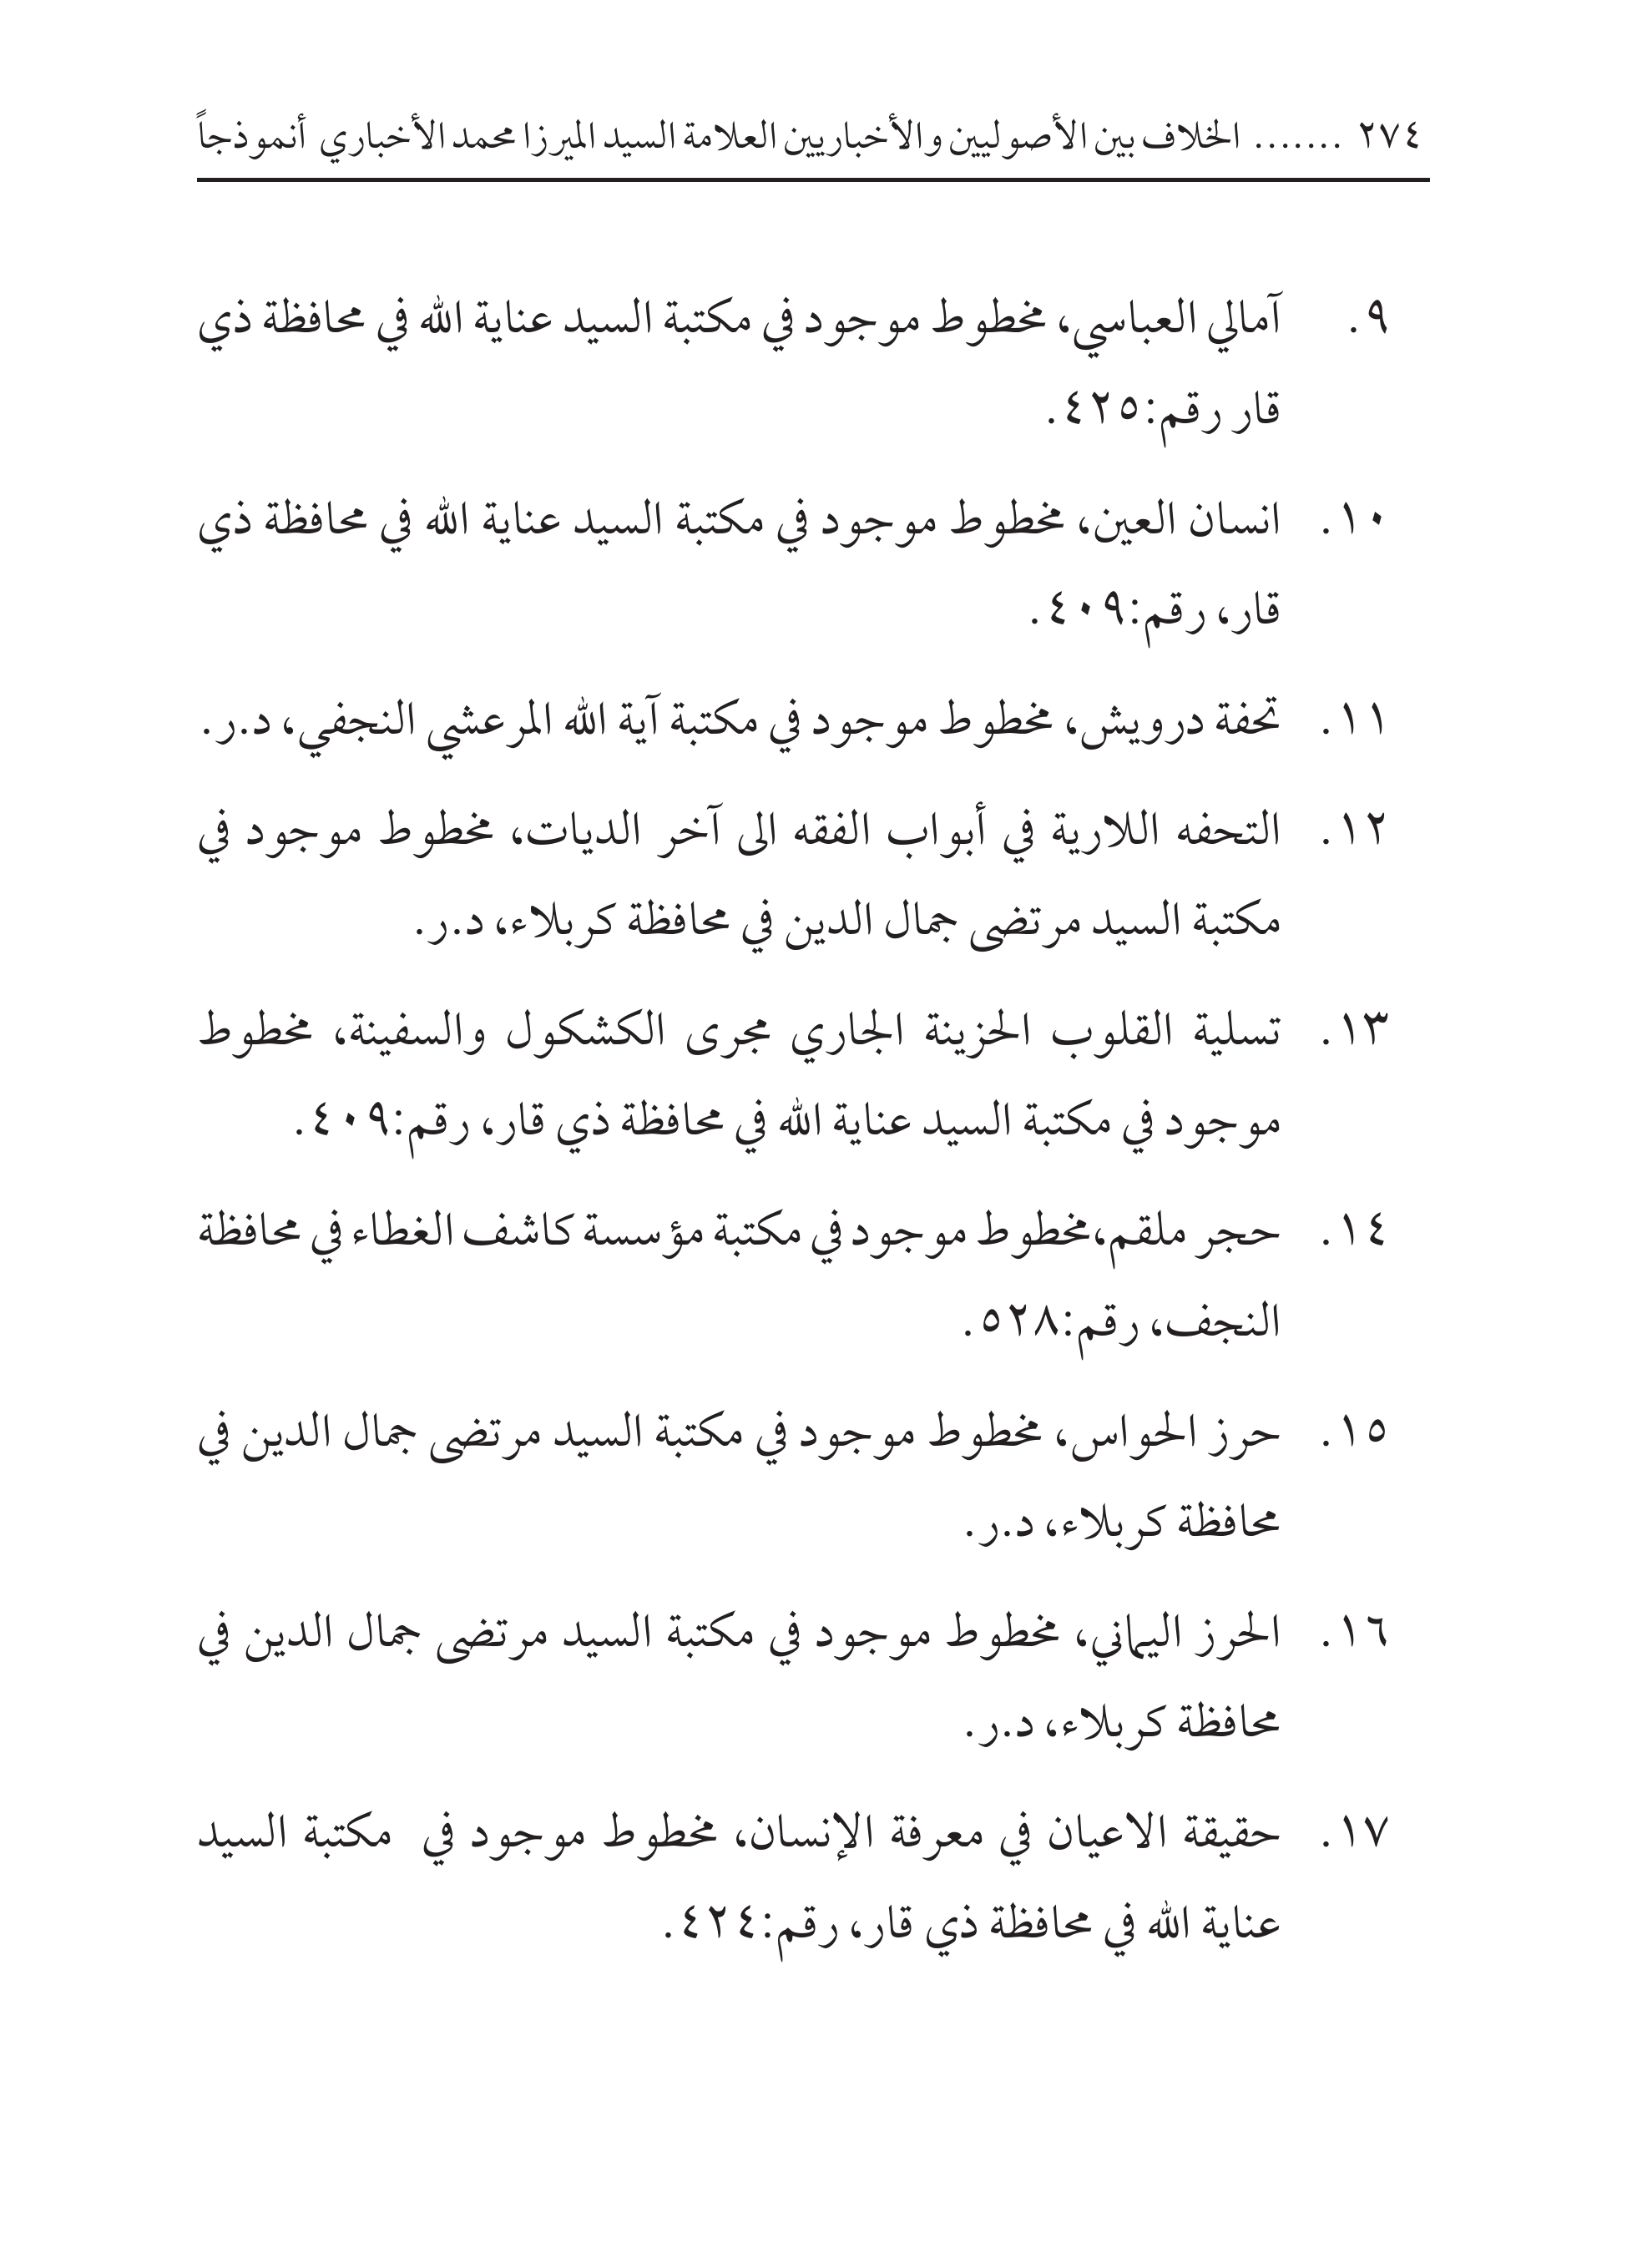 ٢٧٤ ....... الخلاف بين الأصوليين والأخباريين العلامة السيد الميرزا محمد الأخباري أنموذجاً
٩. آمالي العباسي، مخطوط موجود في مكتبة السيد عناية الله في محافظة ذي
قار رقم:٤٢٥.
١٠. انسان العين، مخطوط موجود في مكتبة السيد عناية الله في محافظة ذي
قار، رقم:٤٠٩.
١١. تحفة درويش، مخطوط موجود في مكتبة آية الله المرعشي النجفي، د.ر.
١٢. التحفه اللارية في أبواب الفقه الى آخر الديات، مخطوط موجود في
مكتبة السيد مرتضى جمال الدين في محافظة كربلاء، د.ر.
١٣. تسلية القلوب الحزينة الجاري مجرى الكشكول والسفينة، مخطوط
موجود في مكتبة السيد عناية الله في محافظة ذي قار، رقم:٤٠٩.
١٤. حجر ملقم،مخطوط موجود في مكتبة مؤسسة كاشف الغطاء في محافظة
النجف، رقم:٥٢٨.
١٥. حرز الحواس، مخطوط موجود في مكتبة السيد مرتضى جمال الدين في
محافظة كربلاء، د.ر.
١٦. الحرز اليماني، مخطوط موجود في مكتبة السيد مرتضى جمال الدين في
محافظة كربلاء، د.ر.
١٧. حقيقة الاعيان في معرفة الإنسان، مخطوط موجود في مكتبة السيد
عناية الله في محافظة ذي قار، رقم:٤٢٤.